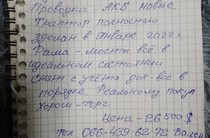 Проводка - АКБ новые
Трактор полностью
зделан в январе 2021г
Рама - мосты всё в
идеальном состоянии
снят с учёта док-все в
порядке. Реальному покуп
хорош- торг
Цена - 26 500$
тел 066-439 62-92